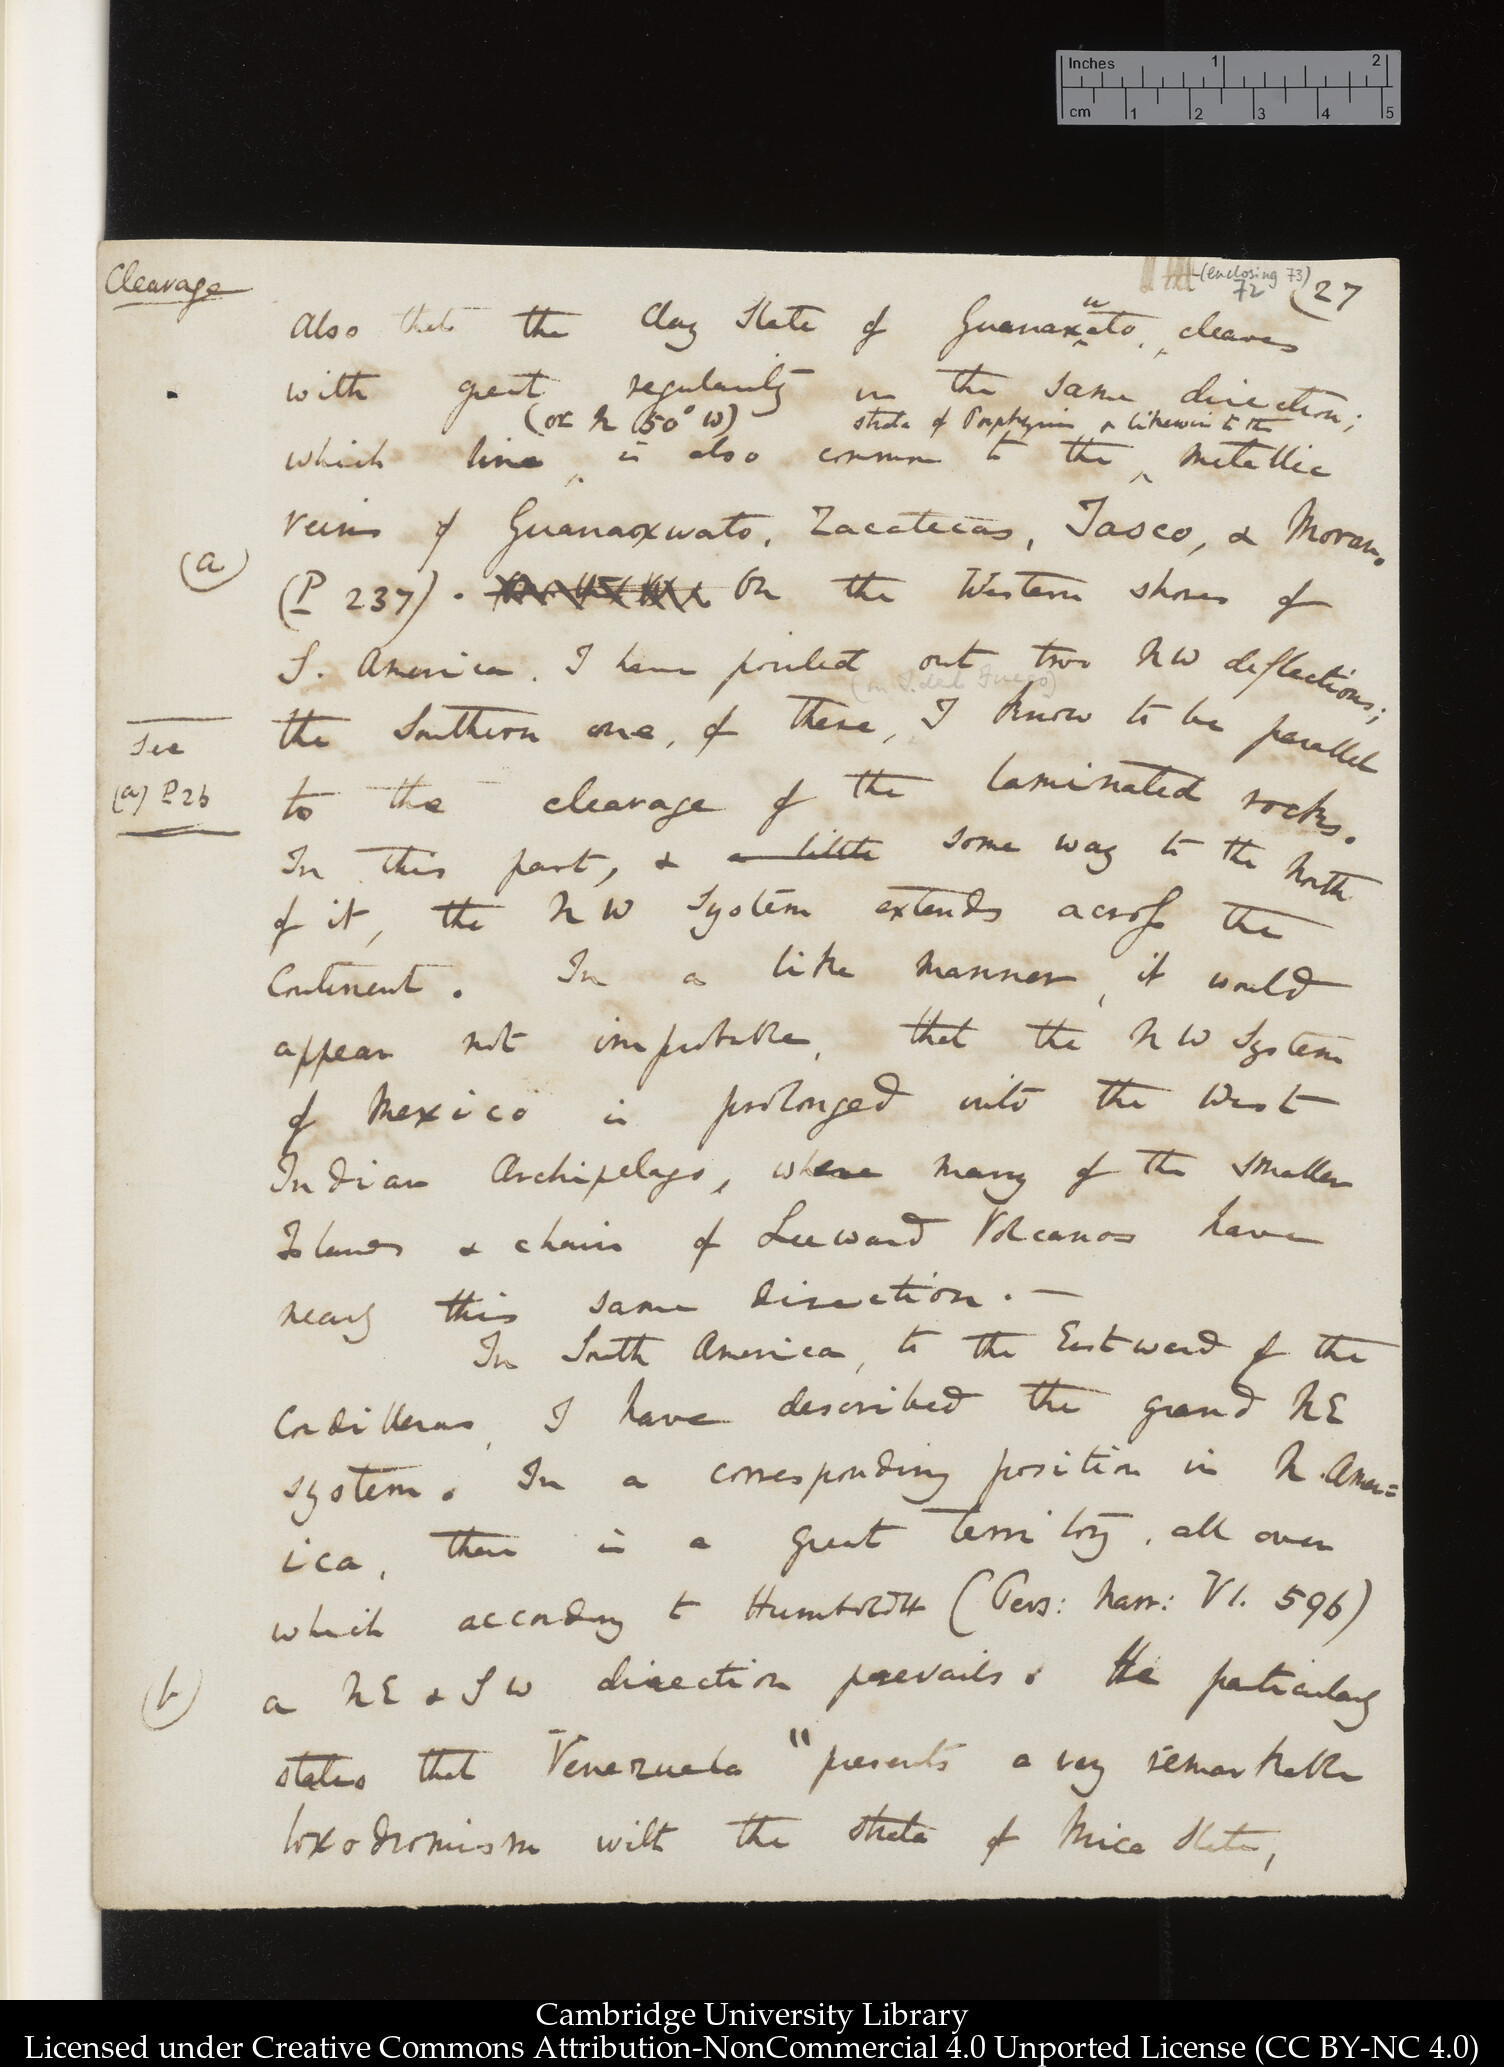 Inches 1 2
cm 1 2 3 4 5
Cleavage
(enclosing 73)
72
(27
Also that the Clay Slate of Guanaxuato, cleaves
with great regularity in the same direction;
(or N 50° W) strata of Porphyries & likewise to the
which line is also common to the metallic
veins of Guanaoxuato, Zacatecas, Tasco, & Moran.
(a)
(P 237). On the Western shores of
S. America. I have pointed out two NW deflections;
(in T. del Fuego)
the Southern one, of these, I know to be parallel
See
(a) P 26
to the cleavage of the laminated rocks.
In this part, & a little some way to the North
of it, the NW System extends across the
Continent. In a like manner, it would
appear not improbable, that the NW System
of Mexico is prolonged into the West
Indian Archipelago, where many of the smaller
Islands & chain of Leeward Volcanos have
nearly this same direction. —
In South America, to the Eastward of the
Cordilleras, I have described the grand NE
system. In a corresponding position in N. Amer=
ica, there is a great territory, all over
which according to Humboldt (Pers: Narr: VI. 596)
(b)
a NE & SW direction prevails. He particularly
states that Venezuela "presents a very remarkable
loxodromism with the strata of Mica Slate,
Cambridge University Library
Licensed under Creative Commons Attribution-NonCommercial 4.0 Unported License (CC BY-NC 4.0)